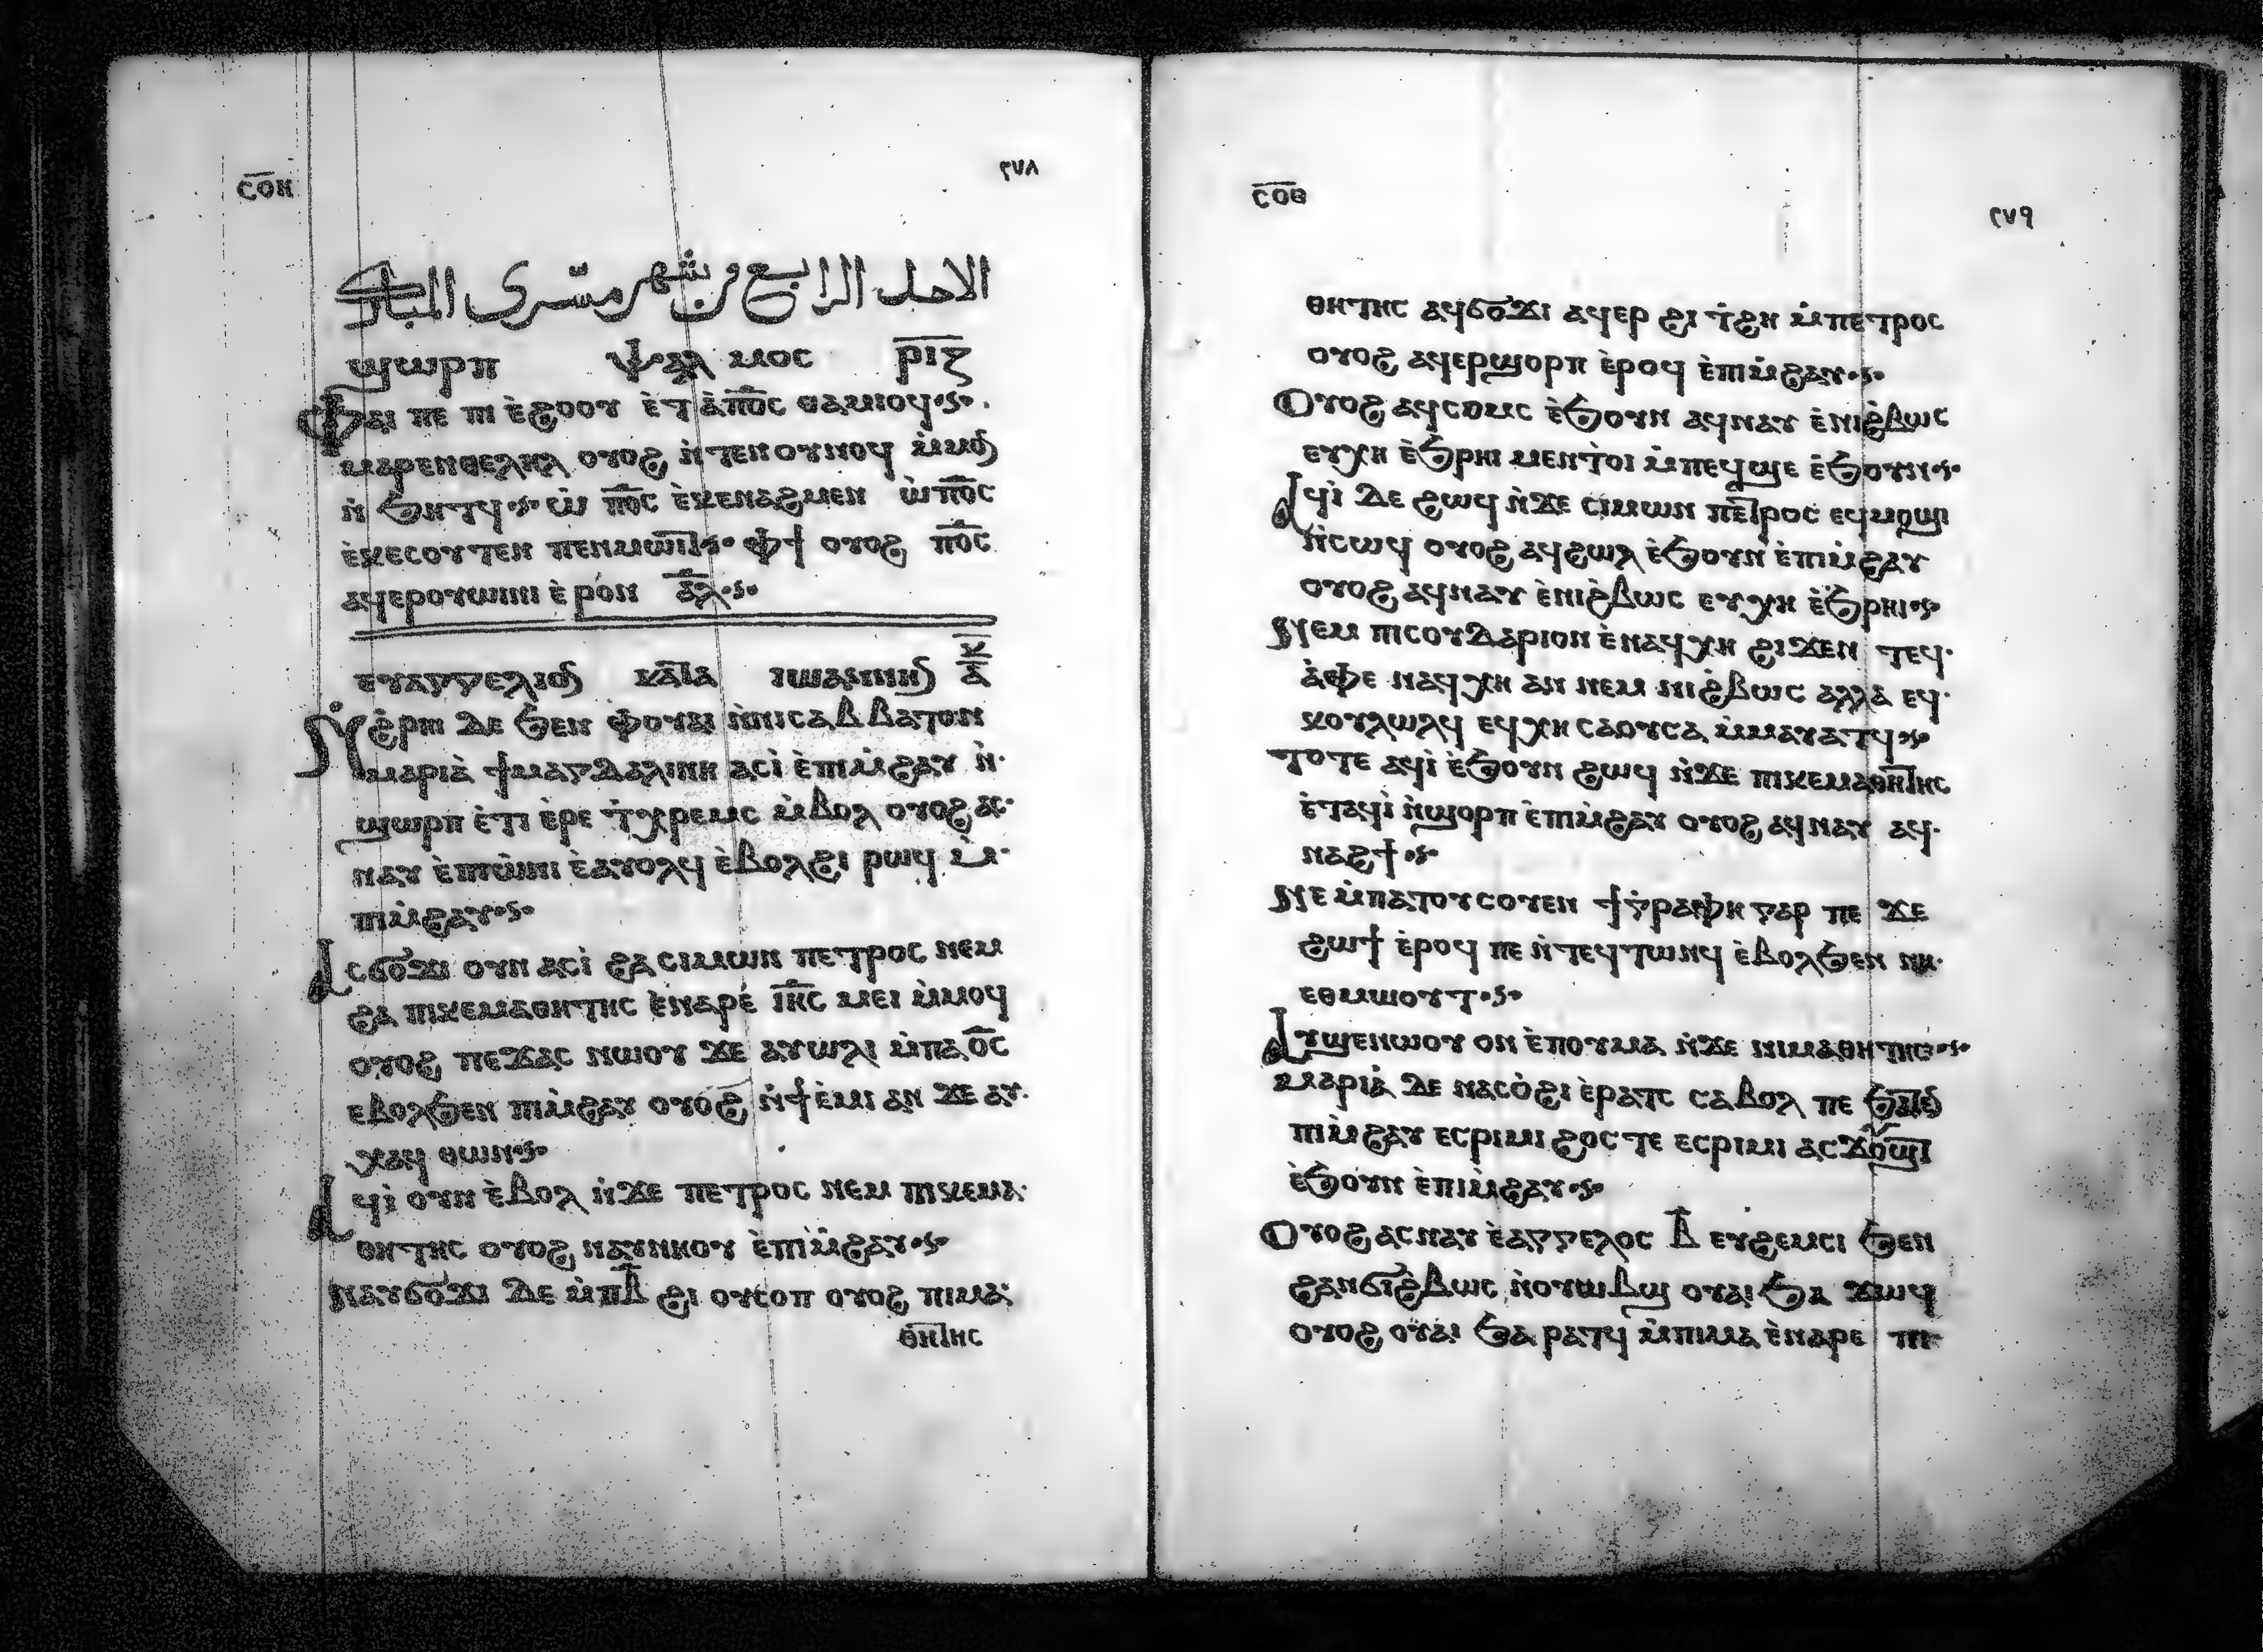 ⲥⲟⲏ
٢٧٨
الاحد الرابع من شهر مسرى المبارك
ϣⲱⲣⲡ ⲯⲁⲗⲙⲟⲥ ⲣⲓⲍ
Ⲫⲁⲓ ⲡⲉ ⲡⲓ ⲉ̀ϩⲟⲟⲩ ⲉ̀ⲧⲁ̀ⲡ⳪ ⲑⲁⲙⲓⲟϥ
ⲙⲁⲣⲉⲛⲑⲉⲗⲏⲗ ⲟⲩⲟϩ ⲛ̀ⲧⲉⲛⲟⲩⲛⲟϥ ⲙ̀ⲙⲟⳝ
ⲛ̀ϧⲏⲧϥ ⲱ̀ ⲡ⳪ ⲉ̀ⲕⲉⲛⲁϩⲙⲉⲛ ⲱ̀ⲡ⳪
ⲉ̀ⲕⲉⲥⲟⲩⲧⲉⲛ ⲡⲉⲛⲙⲱⲓⲧ ⲫϯ ⲟⲩⲟϩ ⲡ⳪
ⲁϥⲉⲣⲟⲩⲱⲓⲛⲓ ⲉ̀ⲣⲟⲛ ⲁ̅ⲗ̅
ⲉⲩⲁⲅⲅⲉⲗⲓⲟⳝ ⲕⲁⲧⲁ ⲓⲱⲁⲛⲛⲏⳝ ⲕ̅ ⲁ̅
Ⲛ̀ϩ̀ⲣⲏⲓ ⲇⲉ ϧⲉⲛ ⲫⲟⲩⲁⲓ ⲛ̀ⲛⲓⲥⲁⲃⲃⲁⲧⲟⲛ
ⲙⲁⲣⲓⲁ̀ ϯⲙⲁⲅⲇⲁⲗⲓⲛⲏ ⲁⲥⲓ̀ ⲉ̀ⲡⲓⲙ̀ϩⲁⲩ ⲛ̀
ϣⲱⲣⲡ ⲉ̀ⲧⲓ ⲉ̀ⲣⲉ ⲧ̀ⲭⲣⲉⲙⲥ ⲙ̀ⲃⲟⲗ ⲟⲩⲟϩ ⲁⲥ
ⲛⲁⲩ ⲉ̀ⲡⲓⲱ̀ⲛⲓ ⲉ̀ⲁⲩⲟⲗϥ ⲉ̀ⲃⲟⲗϩⲓ ⲣⲱϥ ⲙ̀
ⲡⲓⲙ̀ϩⲁⲩ
Ⲁⲥϭⲟϫⲓ ⲟⲩⲛ ⲁⲥⲓ̀ ϩⲁ ⲥⲓⲙⲱⲛ ⲡⲉⲧⲣⲟⲥ ⲛⲉⲙ
ϩⲁ ⲡⲓⲕⲉⲙⲁⲑⲏⲧⲏⲥ ⲉ̀ⲛⲁⲣⲉ ⲓⲏ̅ⲥ ⲙⲉⲓ ⲙ̀ⲙⲟϥ
ⲟⲩⲟϩ ⲡⲉϫⲁⲥ ⲛⲱⲟⲩ ϫⲉ ⲁⲩⲱⲗⲓ ⲙ̀ⲡⲁ⳪
ⲉⲃⲟⲗϧⲉⲛ ⲡⲓⲙ̀ϩⲁⲩ ⲟⲩⲟϩ ⲛ̀ϯⲉ̀ⲙⲓ ⲁⲛ ϫⲉ ⲁⲩ
ⲭⲁϥ ⲑⲱⲛ
Ⲁϥⲓ̀ ⲟⲩⲛ ⲉ̀ⲃⲟⲗ ⲛ̀ϫⲉ ⲡⲉⲧⲣⲟⲥ ⲛⲉⲙ ⲡⲓⲕⲉⲙⲁ
ⲑⲏⲧⲏⲥ ⲟⲩⲟϩ ⲛⲁⲩⲛⲏⲟⲩ ⲉ̀ⲡⲓⲙ̀ϩⲁⲩ
Ⲛⲁⲩϭⲟϫⲓ ⲇⲉ ⲙ̀ⲡⲃ̅ ϩⲓ ⲟⲩⲥⲟⲡ ⲟⲩⲟϩ ⲡⲓⲙⲁ
ⲑⲏⲧⲏⲥ
ⲥⲟⲑ
٢٧٩
ⲑⲏⲧⲏⲥ ⲁϥϭⲟϫⲓ ⲁϥⲉⲣ ϩⲓ ⲧ̀ϩⲏ ⲙ̀ⲡⲉⲧⲣⲟⲥ
ⲟⲩⲟϩ ⲁϥⲉⲣϣⲟⲣⲡ ⲉ̀ⲣⲟϥ ⲉ̀ⲡⲓⲙ̀ϩⲁⲩ
Ⲟⲩⲟϩ ⲁϥⲥⲟⲙⲥ ⲉ̀ϧⲟⲩⲛ ⲁϥⲛⲁⲩ ⲉ̀ⲛⲓϩ̀ⲃⲱⲥ
ⲉⲩⲭⲏ ⲉ̀ϧⲣⲏⲓ ⲙⲉⲛⲧⲟⲓ ⲙ̀ⲡⲉϥϣⲉ ⲉ̀ϧⲟⲩⲛ
Ⲁϥⲓ̀ ⲇⲉ ϩⲱϥ ⲛ̀ϫⲉ ⲥⲓⲙⲱⲛ ⲡⲉⲧⲣⲟⲥ ⲉϥⲙⲟϣⲓ
ⲛ̀ⲥⲱϥ ⲟⲩⲟϩ ⲁϥϩⲱⲗ ⲉ̀ϧⲟⲩⲛ ⲉ̀ⲡⲓⲙ̀ϩⲁⲩ
ⲟⲩⲟϩ ⲁϥⲛⲁⲩ ⲉ̀ⲛⲓϩ̀ⲃⲱⲥ ⲉⲩⲭⲏ ⲉ̀ϧⲣⲏⲓ
Ⲛⲉⲙ ⲡⲓⲥⲟⲩⲇⲁⲣⲓⲟⲛ ⲉ̀ⲛⲁϥⲭⲏ ϩⲓϫⲉⲛ ⲧⲉϥ
ⲁ̀ⲫⲉ ⲛⲁϥⲭⲏ ⲁⲛ ⲛⲉⲙ ⲛⲓϩ̀ⲃⲱⲥ ⲁⲗⲗⲁ ⲉϥ
ⲕⲟⲩⲗⲱⲗϥ ⲉϥⲭⲏ ⲥⲁⲟⲩⲥⲁ ⲙ̀ⲙⲁⲩⲁⲧϥ
ⲧⲟⲧⲉ ⲁϥⲓ̀ ⲉ̀ϧⲟⲩⲛ ϩⲱϥ ⲛ̀ϫⲉ ⲡⲓⲕⲉⲙⲁⲑⲏⲧⲏⲥ
ⲉ̀ⲧⲁϥⲓ̀ ⲛ̀ϣⲟⲣⲡ ⲉ̀ⲡⲓⲙ̀ϩⲁⲩ ⲟⲩⲟϩ ⲁϥⲛⲁⲩ ⲁϥ
ⲛⲁϩϯ
Ⲛⲉ ⲙ̀ⲡⲁⲧⲟⲩⲥⲟⲩⲉⲛ ϯⲅⲣⲁⲫⲏ ⲅⲁⲣ ⲡⲉ ϫⲉ
ϩⲱϯ ⲉ̀ⲣⲟϥ ⲡⲉ ⲛ̀ⲧⲉϥⲧⲱⲛϥ ⲉ̀ⲃⲟⲗϧⲉⲛ ⲛⲏ
ⲉⲑⲙⲱⲟⲩⲧ
Ⲁⲩϣⲉⲛⲱⲟⲩ ⲟⲛ ⲉ̀ⲡⲟⲩⲙⲁ ⲛ̀ϫⲉ ⲛⲓⲙⲁⲑⲏⲧⲏⲥ
ⲙⲁⲣⲓⲁ̀ ⲇⲉ ⲛⲁⲥⲟ̀ϩⲓ ⲉ̀ⲣⲁⲧⲥ ⲥⲁⲃⲟⲗ ⲡⲉ ϧⲁⲧⲉⳝ
ⲡⲓⲙ̀ϩⲁⲩ ⲉⲥⲣⲓⲙⲓ ϩⲟⲥⲧⲉ ⲉⲥⲣⲓⲙⲓ ⲁⲥϫⲟⲩϣⲧ
ⲉ̀ϧⲟⲩⲛ ⲉ̀ⲡⲓⲙ̀ϩⲁⲩ
Ⲟⲩⲟϩ ⲁⲥⲛⲁⲩ ⲉ̀ⲁⲅⲅⲉⲗⲟⲥ ⲃ̅ ⲉⲩϩⲉⲙⲥⲓ ϧⲉⲛ
ϩⲁⲛϭⲓϩ̀ⲃⲱⲥ ⲛ̀ⲟⲩⲱⲃϣ ⲟⲩⲁⲓ ϧⲁ ϫⲱϥ
ⲟⲩⲟϩ ⲟⲩⲁⲓ ϧⲁ ⲣⲁⲧϥ ⲙ̀ⲡⲓⲙⲁ ⲉ̀ⲛⲁⲣⲉ ⲡⲓ